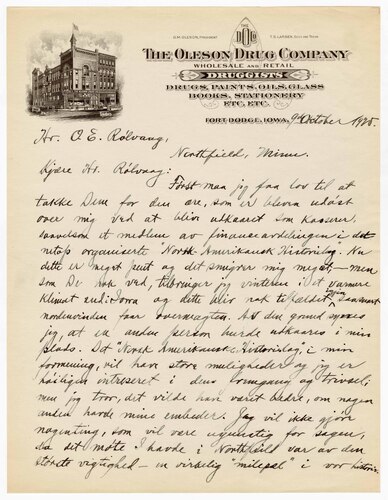 O.M. OLESON, PRESIDENT
T.S. LARSEN, SEC'Y AND TREAS.
THE OLESON DRUG COMPANY
WHOLESALE AND RETAIL
DRUGGISTS
DRUGS, PAINTS, OILS, GLASS
BOOKS, STATIONERY
ETC. ETC.
FORT DODGE, IOWA, 9de October 1925
Hr. O. E. Rölvaag,
Northfield, Minn.
Kjære Hr. Rölvaag: Först maa jeg faa lov til at
takke Dem for den ære, som er bleven udöst
over mig ved at blive udkaaret som Kasserer,
saavelsom et medlem av finansavdelingen i det
netop organiserte "Norsk Amerikansk Historielag". Nu
dette er meget pent og det smigrer mig meget — men
som De nok ved, tilbringer jeg vinteren i et varmere
Klimat end Iowa og dette blir nok tilfældet igjen saasnart
nordenvinden faar overmagten. Av den grund synes
jeg at en anden person burde udkaares i min
plads. Det "Norsk Amerikansk Historielag", i min
formening, vil have store muligheder og jeg er
höiligen intreseret i dens fremgang og trivsel;
men jeg tror, det vilde han været bedre, om nogen
anden havde mine embeder. Jeg vil ikke gjöre
nogenting, som vil være ugunstig for sagen,
da det möte I havde i Northfield var av den
störste vigtighed — en virkelig "milepæl" i vor historie